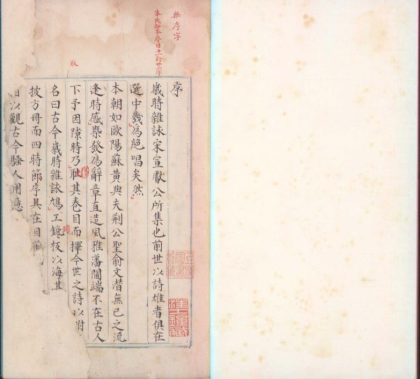 序
歲時雜詠宋宣獻公所集也前世以詩雄者俱在
選中幾為絕唱矣然
本朝如歐陽蘇黃與夫荆公聖俞文潛無已之流
逢時感慨發為辭章直造風雅藩閫端不在古人
下予因隙時乃取其卷目而擇今世之詩以附
名曰古今歲時雜詠鳩工鏤板以海其
披方冊而四時節序具在目
以觀古今騷人用意